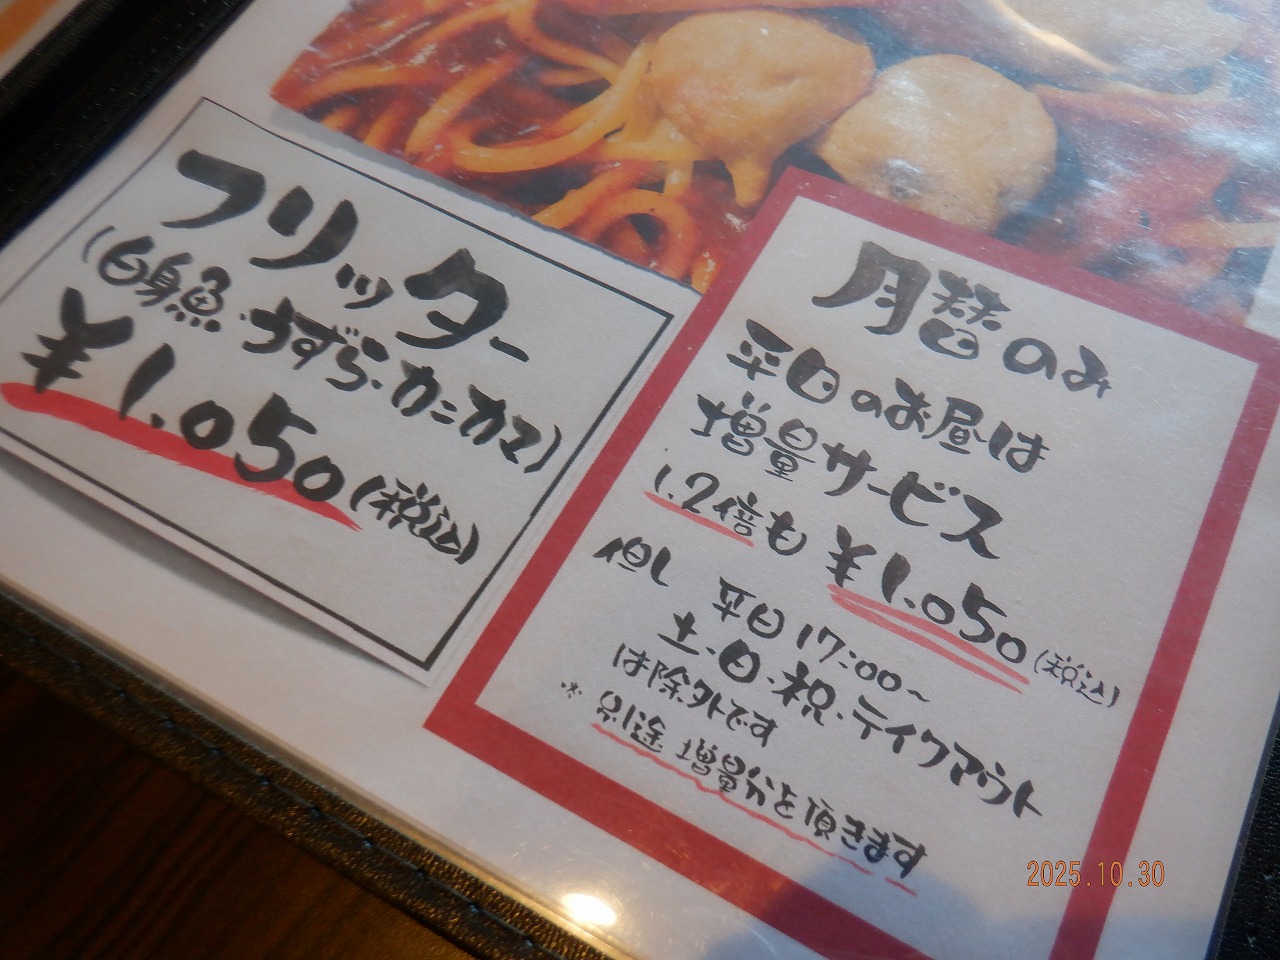 フリッター
(白身魚・うずら・カニカマ)
¥1.050(税込)
月替のみ
平日のお昼は
増量サービス
1.2倍も ¥1.050(税込)
但し 平日17:00~
土・日・祝・テイクアウト
は除外です
※ 別途 増量分を頂きます
2025.10.30